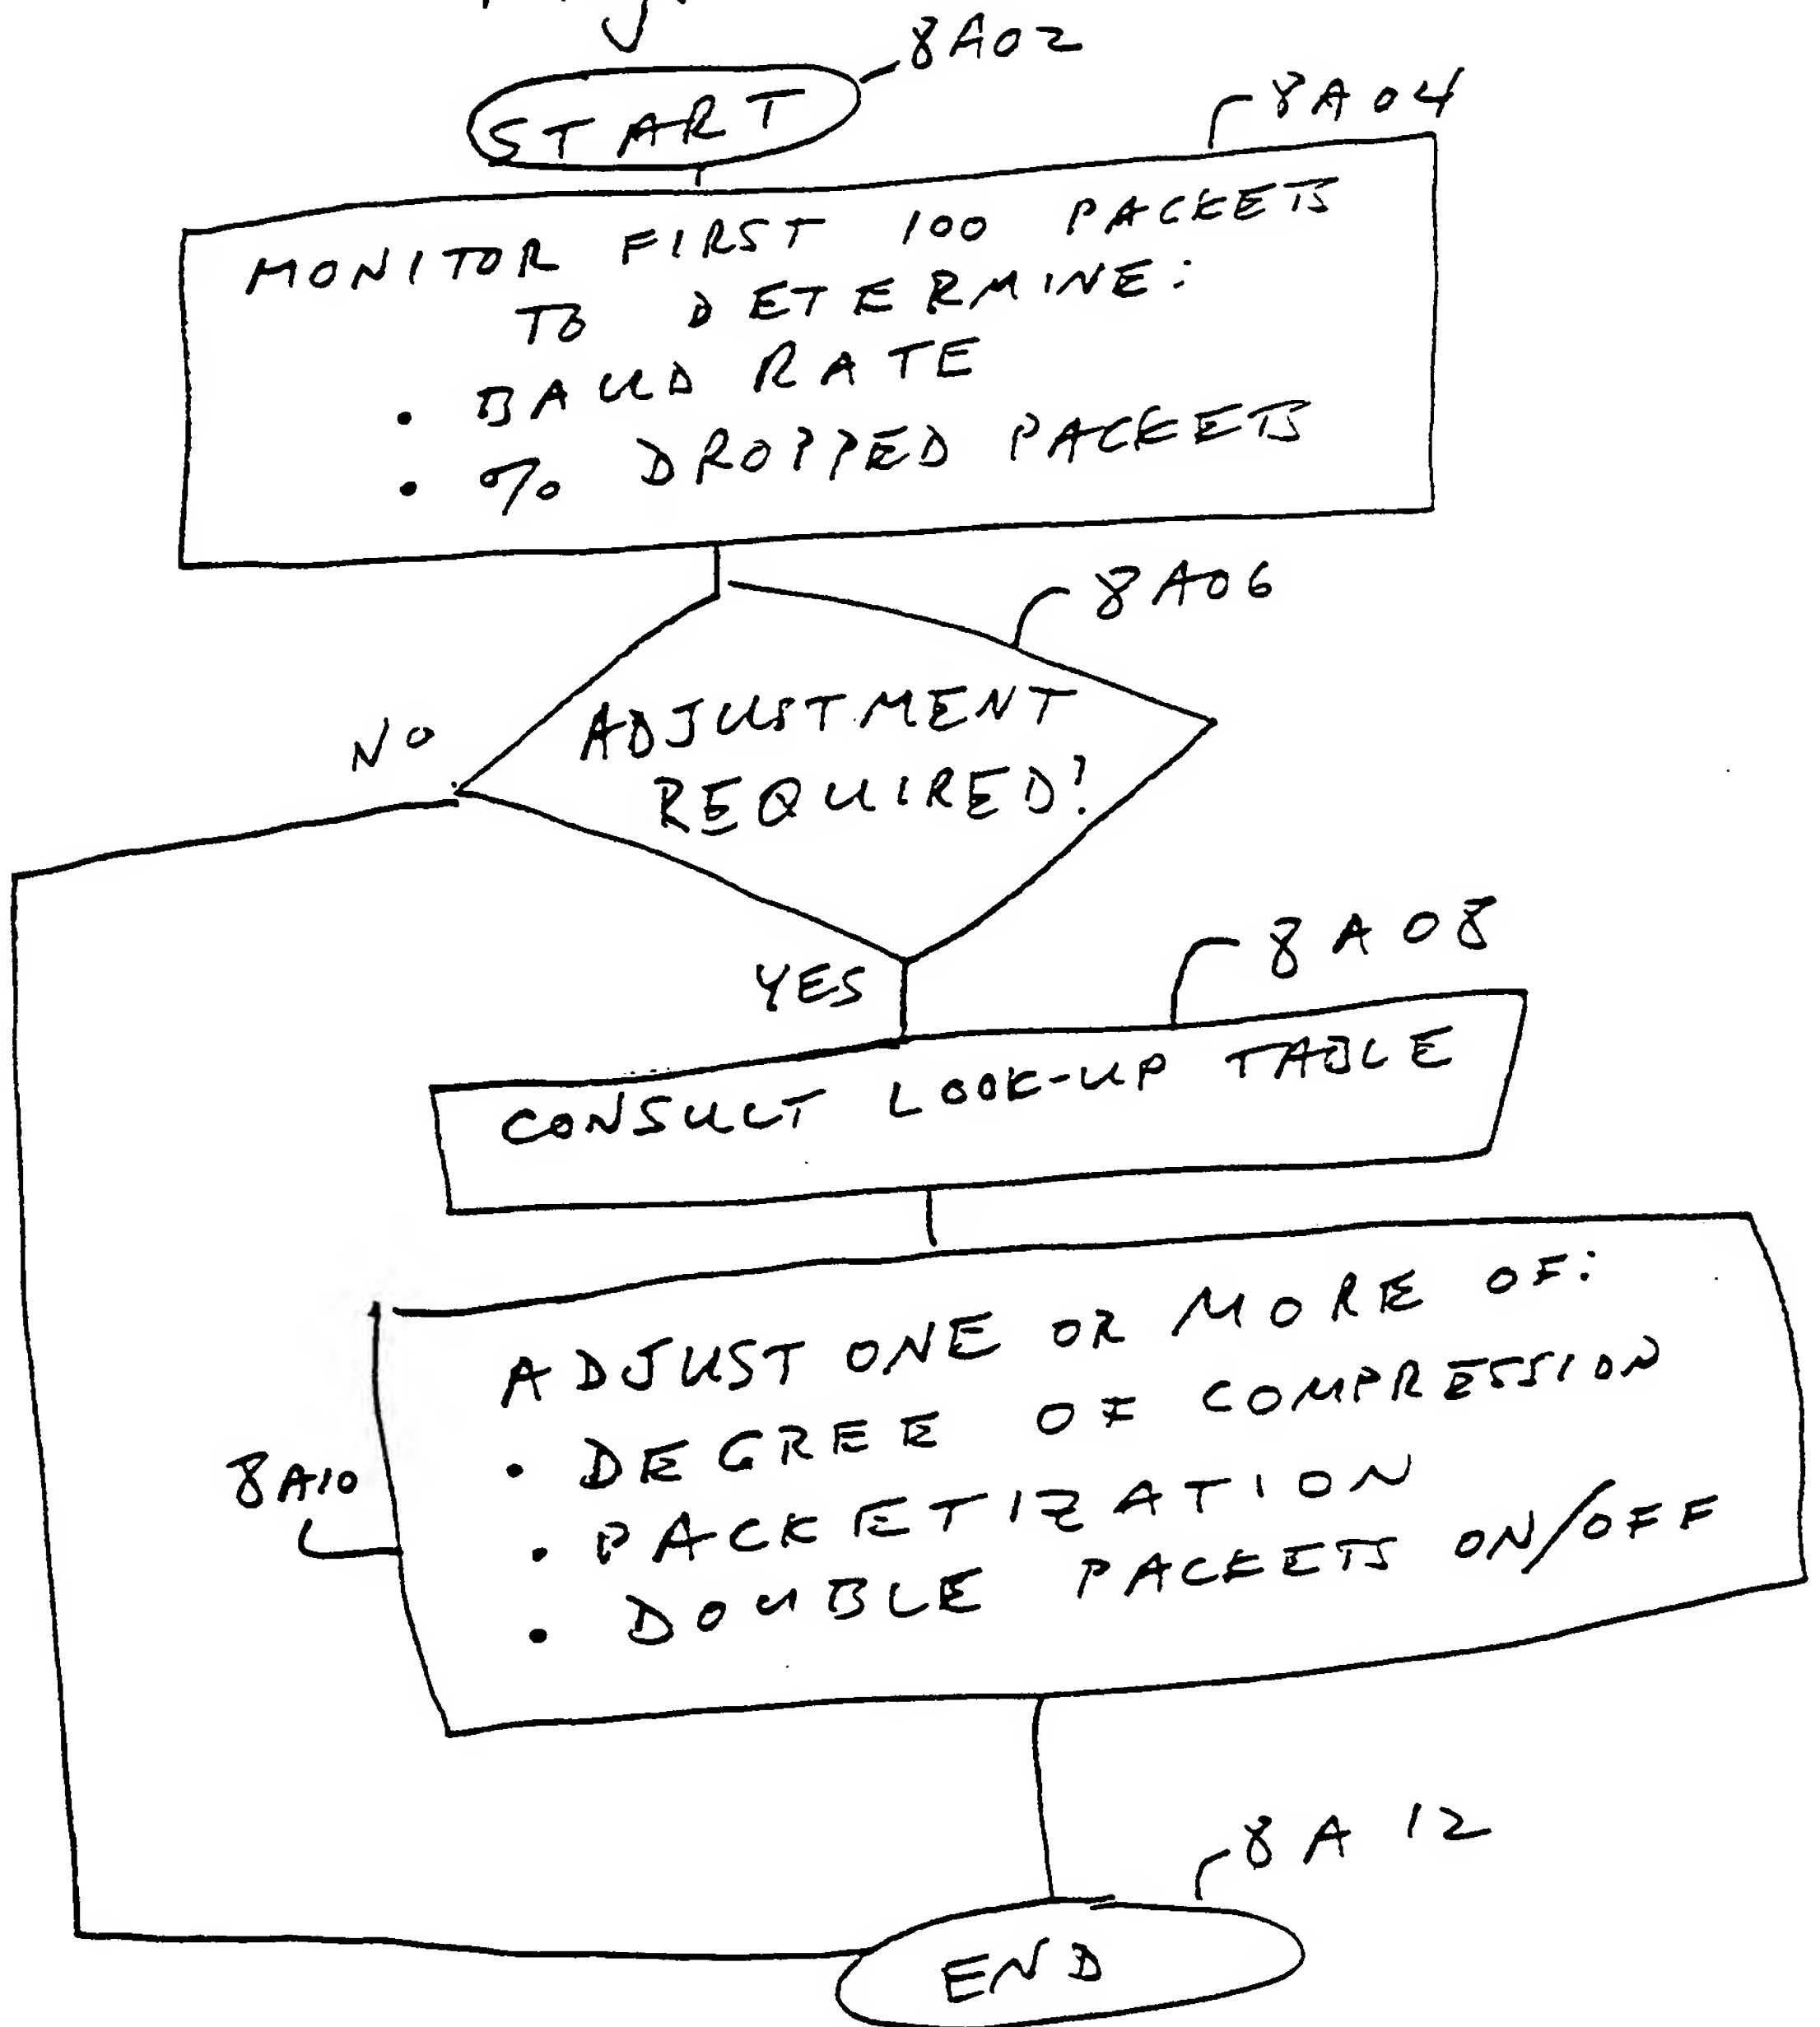 8A02
START
8A04
MONITOR FIRST 100 PACKETS
TO DETERMINE:
• BAUD RATE
• % DROPPED PACKETS
8A06
NO
ADJUSTMENT
REQUIRED?
YES
8A08
CONSULT LOOK-UP TABLE
ADJUST ONE OR MORE OF:
• DEGREE OF COMPRESSION
8A10
• PACKETIZATION
• DOUBLE PACKETS ON/OFF
8A12
END